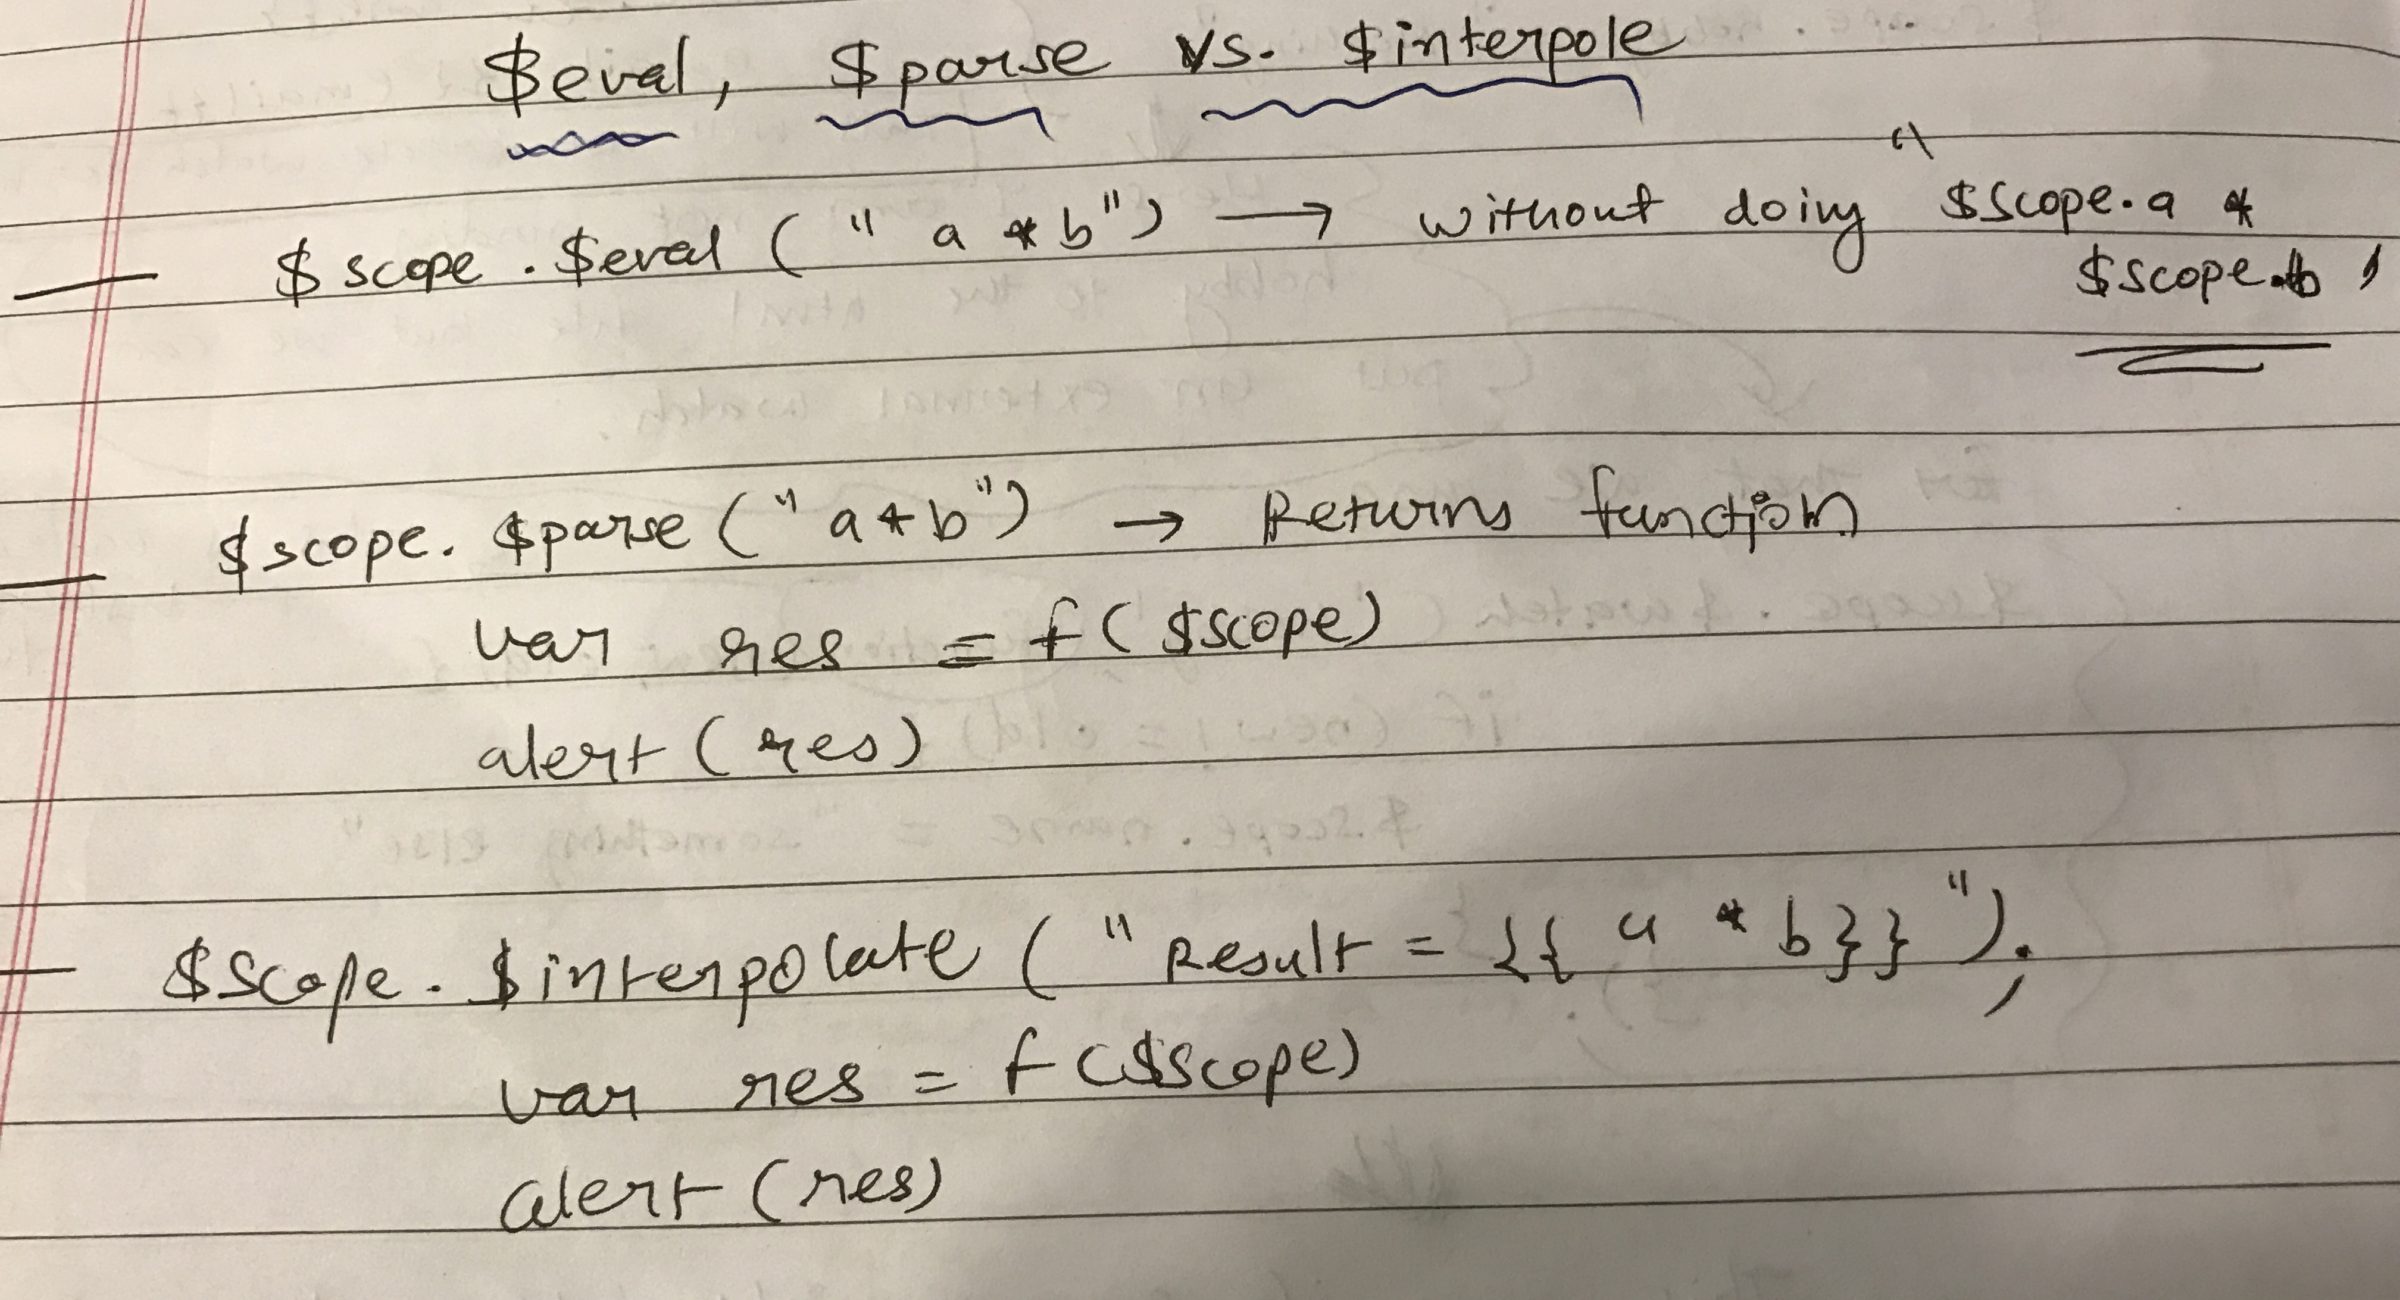 $eval, $parse vs. $interpole
— $scope.$eval ("a * b") → without doing "$scope.a *
$scope.b"
— $scope.$parse ("a * b") → Returns function
var res = f($scope)
alert(res)
— $scope.$interpolate ("Result = {{ a * b}}");
var res = f($scope)
alert(res)